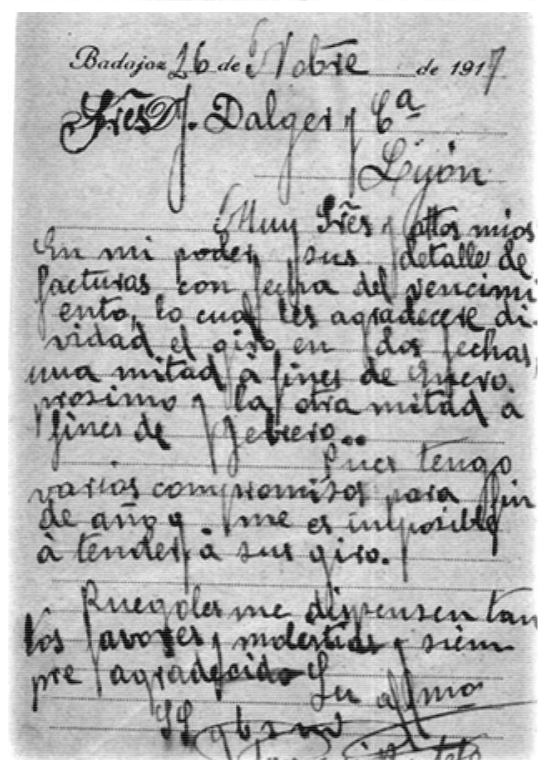 Badajoz 26 de Nobre de 1917
Sres D J. Dalger y Cª
Lyón
Muy Sres y attos mios
En mi poder sus detalle de
facturas con fecha del vencimi
ento, lo cual les agradecere di-
vidad el giro en dos fechas,
una mitad à fines de Enero.
prosimo y la otra mitad à
fines de Febrero..
Pues tengo
varios compromisos para fin
de año y me es imposible
à tender à sus giro.
Ruegoles me dispensen tan
tos favores y molestias y siem
pre agradecido Su affmo
SS q b s m